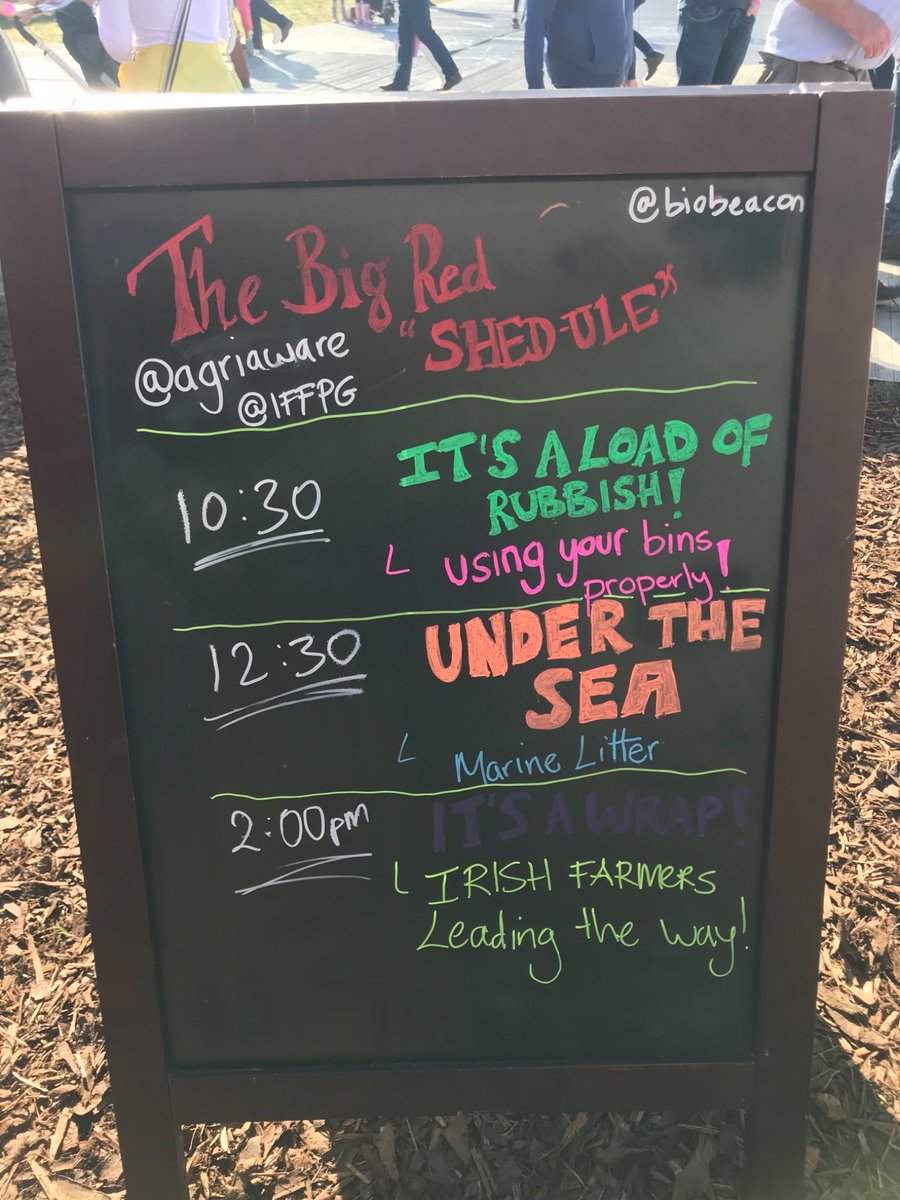 @biobeacon
The Big Red
"SHED-ULE"
@agriaware
@IFFPG
10:30
IT'S A LOAD OF
RUBBISH!
using your bins
properly!
12:30
UNDER THE
SEA
Marine Litter
2:00pm
IT'S A WRAP!
IRISH FARMERS
Leading the way!